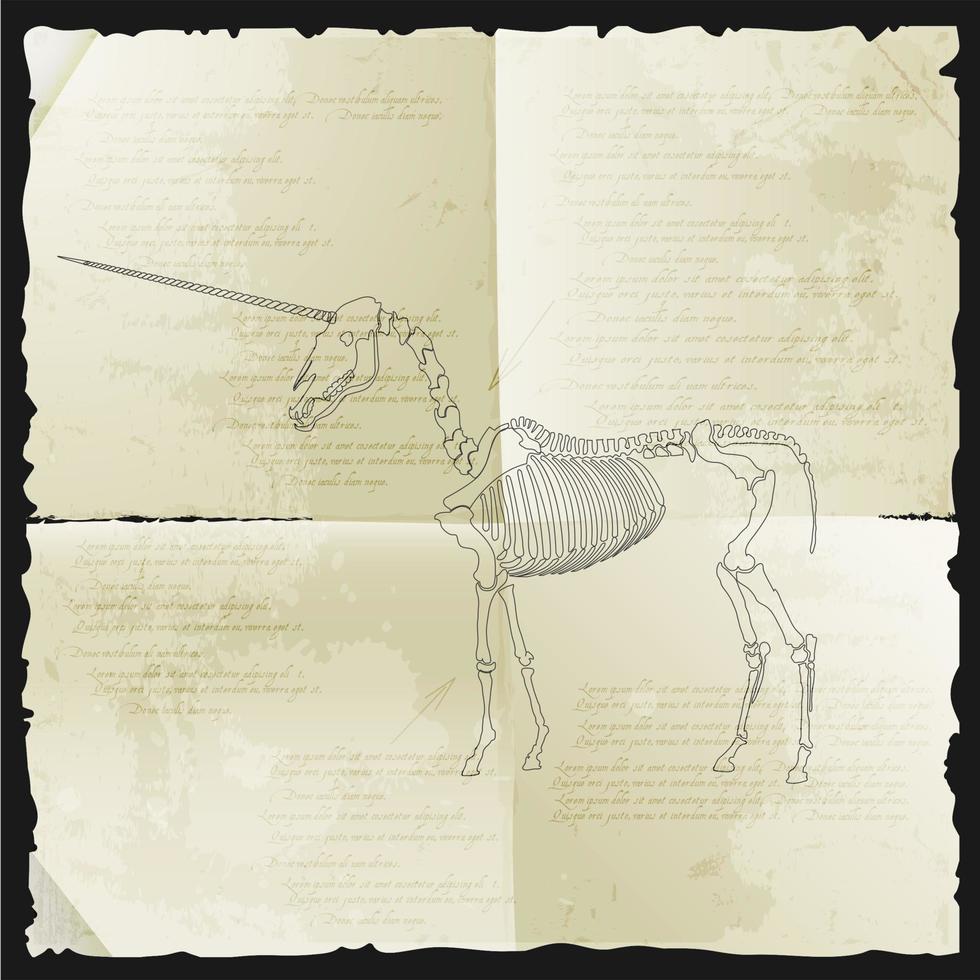 Lorem ipsum dolor sit amet cosectetur adipising elit, Donec vestibulum aliquam ultrices.
Quisque orci justo, varius et interdum eu, viverra eget st. Donec iaculis diam neque.
Donec iaculis diam neque.
Lorem ipsum dolor sit amet cosectetur adipising elit.
Quisque orci justo, varius et interdum eu, viverra eget st.
Donec vestibulum uam ultrices.
Lorem ipsum dolor sit amet cosectetur adipising eli t.
Quisque orci justo, varius et interdum eu, viverra eget st.
Donec iaculis diam neque.
Lorem ipsum dolor sit amet cosectetur adipising elit.
Quisque orci justo, varius et interdum eu, viverra eget st.
Donec iaculis diam neque.
Lorem ipsum dolor sit amet cosectetur adipising elit.
Quisque orci justo, varius et interdum eu, viverra eget st.
Donec vestibulum uam ultrices.
Lorem ipsum dolor sit amet cosectetur adipising eli t.
Quisque orci justo, varius et interdum eu, viverra eget st.
Donec iaculis diam neque.
Lorem ipsum dolor sit amet cosectetur adipising elit, Donec vestibulum aliquam ultrices.
Quisque orci justo, varius et interdum eu, viverra eget st. Donec iaculis diam neque.
Donec iaculis diam neque.
Lorem ipsum dolor sit amet cosectetur adipising elit.
Quisque orci justo, varius et interdum eu, viverra eget st.
Donec vestibulum uam ultrices.
Lorem ipsum dolor sit amet cosectetur adipising eli t.
Quisque orci justo, varius et interdum eu, viverra eget st.
Donec iaculis diam neque.
Lorem ipsum dolor sit amet cosectetur adipising elit.
Quisque orci justo, varius et interdum eu, viverra eget st.
Donec iaculis diam neque.
Lorem ipsum dolor sit amet cosectetur adipising elit.
Quisque orci justo, varius et interdum eu, viverra eget st.
Donec vestibulum uam ultrices.
Lorem ipsum dolor sit amet cosectetur adipising eli t.
Lorem ipsum dolor sit amet cosectetur adipising elit.
Quisque orci justo, varius et interdum eu, viverra eget st.
Donec iaculis diam neque.
Lorem ipsum dolor sit amet cosectetur adipising elit.
Quisque orci justo, varius et interdum eu, viverra eget st.
Donec vestibulum uam ultrices.
Lorem ipsum dolor sit amet cosectetur adipising eli t.
Quisque orci justo, varius et interdum eu, viverra eget st.
Donec iaculis diam neque.
Lorem ipsum dolor sit amet cosectetur adipising elit.
Quisque orci justo, varius et interdum eu, viverra eget st.
Donec iaculis diam neque.
Lorem ipsum dolor sit amet cosectetur adipising elit.
Quisque orci justo, varius et interdum eu, viverra eget st.
Donec vestibulum uam ultrices.
Lorem ipsum dolor sit amet cosectetur adipising eli t.
Quisque orci justo, varius et interdum eu, viverra eget st.
Donec iaculis diam neque.
Lorem ipsum dolor sit amet cosectetur adipising eli t.
Quisque orci justo, varius et interdum eu, viverra eget st.
Lorem ipsum dolor sit amet cosectetur adipising eli t.
Quisque orci justo, varius et interdum eu, viverra eget st.
Lorem ipsum dolor sit amet cosectetur adipising elit, Donec vestibulum aliquam ultrices.
Quisque orci justo, varius et interdum eu, viverra eget st. Donec iaculis diam neque.
Lorem ipsum dolor sit amet cosectetur adipising elit, Donec vestibulum aliquam ultrices.
Quisque orci justo, varius et interdum eu, viverra eget st. Donec iaculis diam neque.